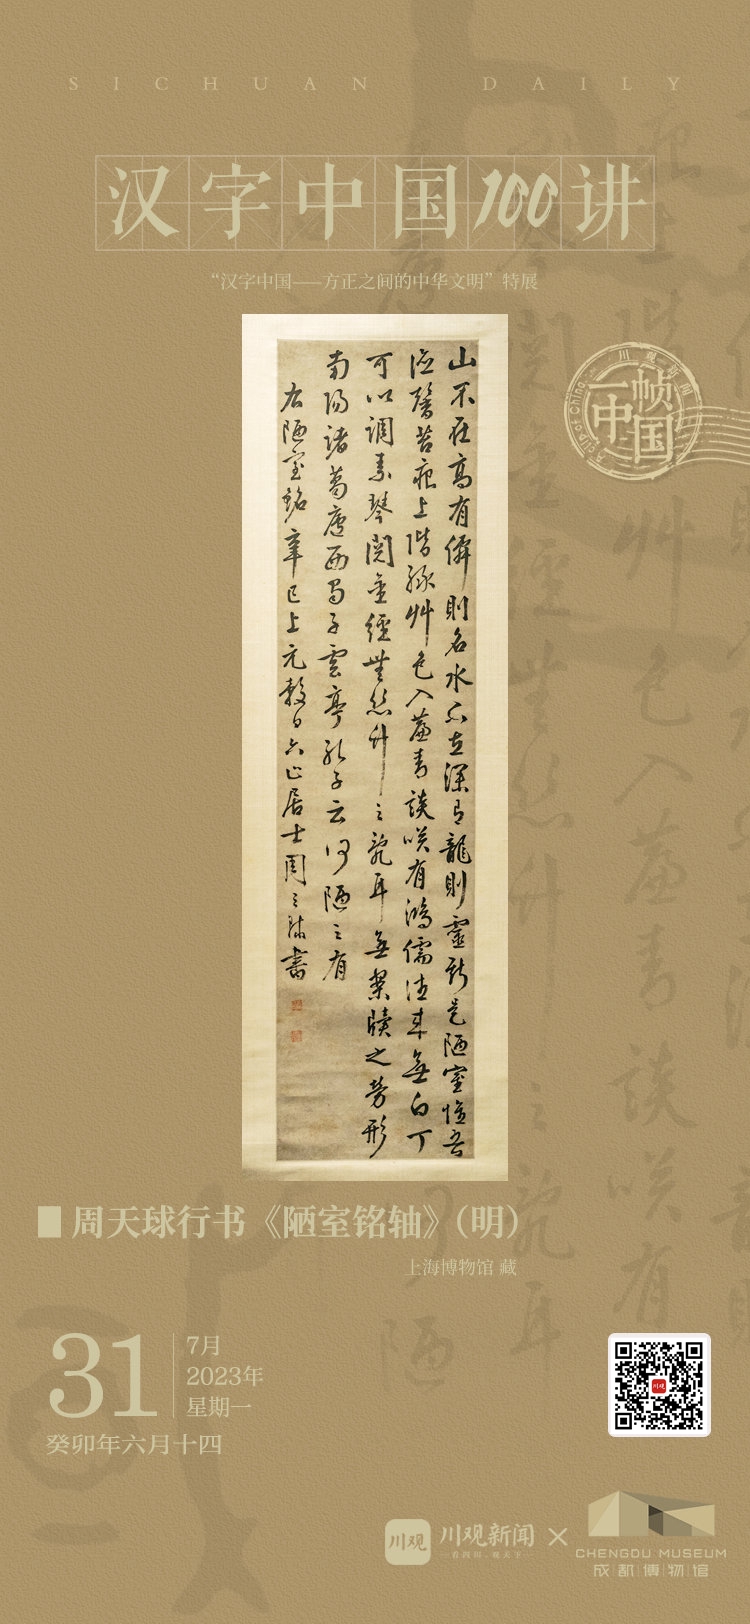 SICHUAN DAILY
汉字中国100讲
“汉字中国——方正之间的中华文明”特展
川观新闻
一帧
中国
山不在高有僊則名水不在深有龍則靈斯是陋室惟吾
德馨苔痕上階綠艸色入簾青談咲有鴻儒往來無白丁
可以調素琴閱金經無絲竹之亂耳無案牘之勞形
南陽諸葛廬西蜀子雲亭孔子云何陋之有
右陋室銘辛巳上元穀日六止居士周天球書
周天球行书《陋室铭轴》（明）
上海博物馆 藏
31
7月
2023年
星期一
癸卯年六月十四
川观
川观新闻
×
CHENGDU MUSEUM
成都博物馆